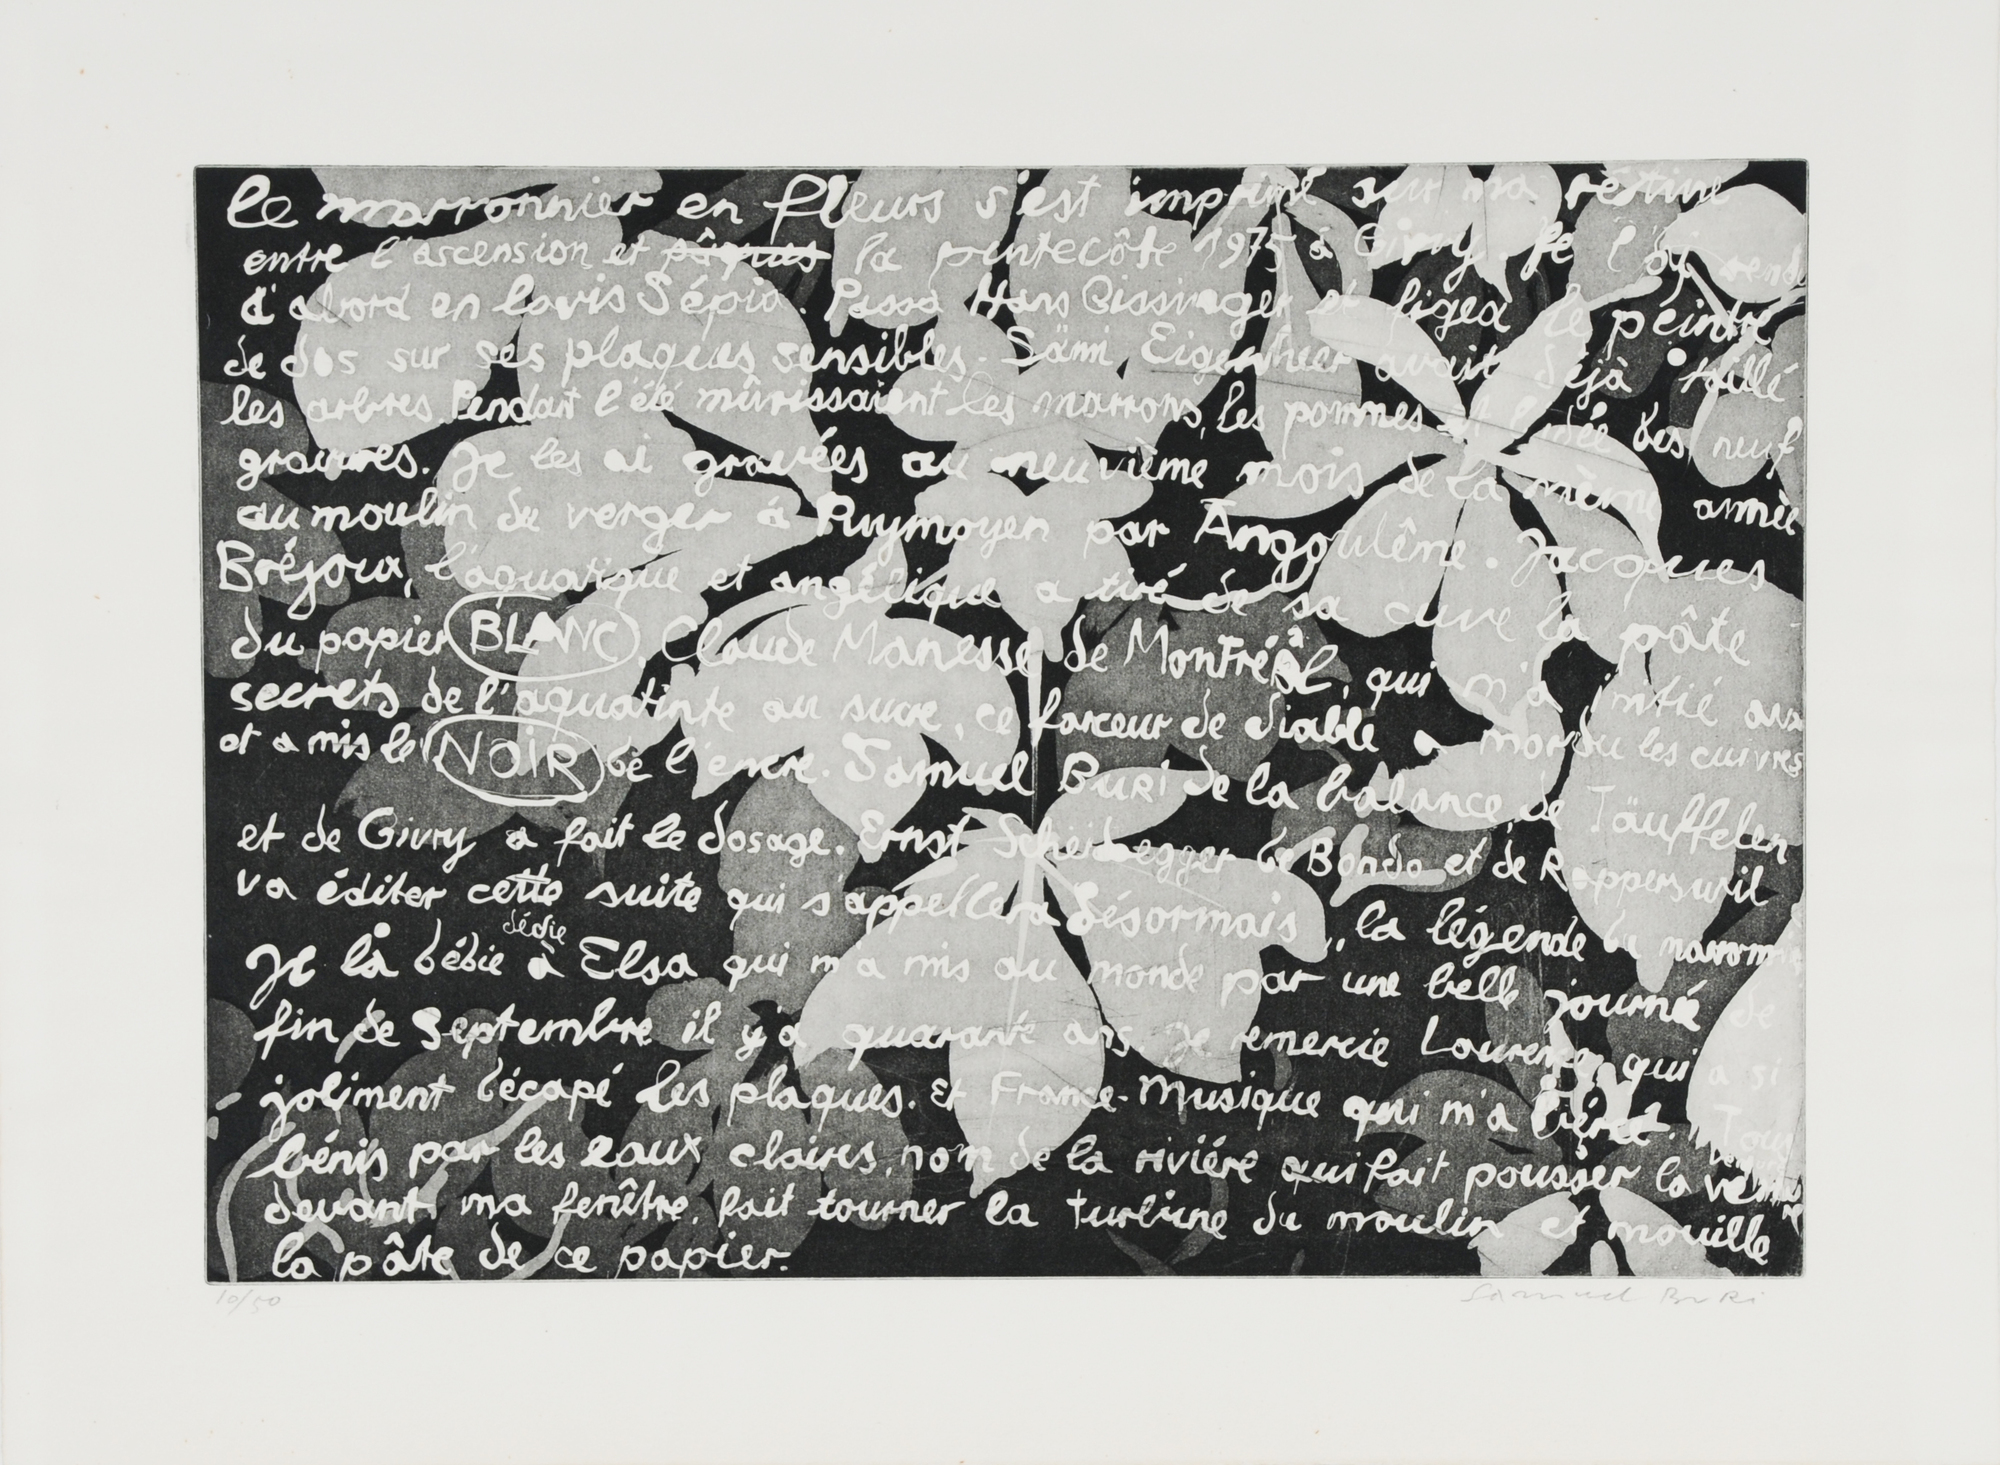 le marronnier en fleurs s'est imprimé sur ma rétine
entre l'ascension et pâques la pentecôte 1975 à Givry. Je l'ai rendu
d'abord en lavis Sépia. Passa Hans Gissinger et figea le peintre
de dos sur ses plaques sensibles. Sämi Eigenheer avait déjà taillé
les arbres. Pendant l'été mûrissaient les marrons, les pommes et l'idée des neuf
gravures. Je les ai gravées au neuvième mois de la même année
au moulin du verger à Puymoyen par Angoulême. Jacques
Bréjoux, l'aquatique et angélique a tiré de sa cuve la pâte
du papier BLANC, Claude Manesse de Montréal, qui m'a initié aux
secrets de l'aquatinte au sucre, ce farceur de diable a mordu les cuivres
et a mis le NOIR de l'encre. Samuel Buri de la balance, de Täuffelen
et de Givry a fait le dosage. Ernst Scheidegger de Bondo et de Rapperswil
va éditer cette suite qui s'appellera désormais „la légende du marronnier
dédie
Je la dédie à Elsa qui m'a mis au monde par une belle journée de
fin de Septembre il y'a quarante ans. Je remercie Laurence, qui a si
joliment décapé les plaques. Et France-Musique qui m'a libéré. Tous
bénis par les eaux claires, nom de la rivière qui fait pousser la
devant ma fenêtre, fait tourner la turbine du moulin et mouille
la pâte de ce papier.
10/50
Samuel Buri